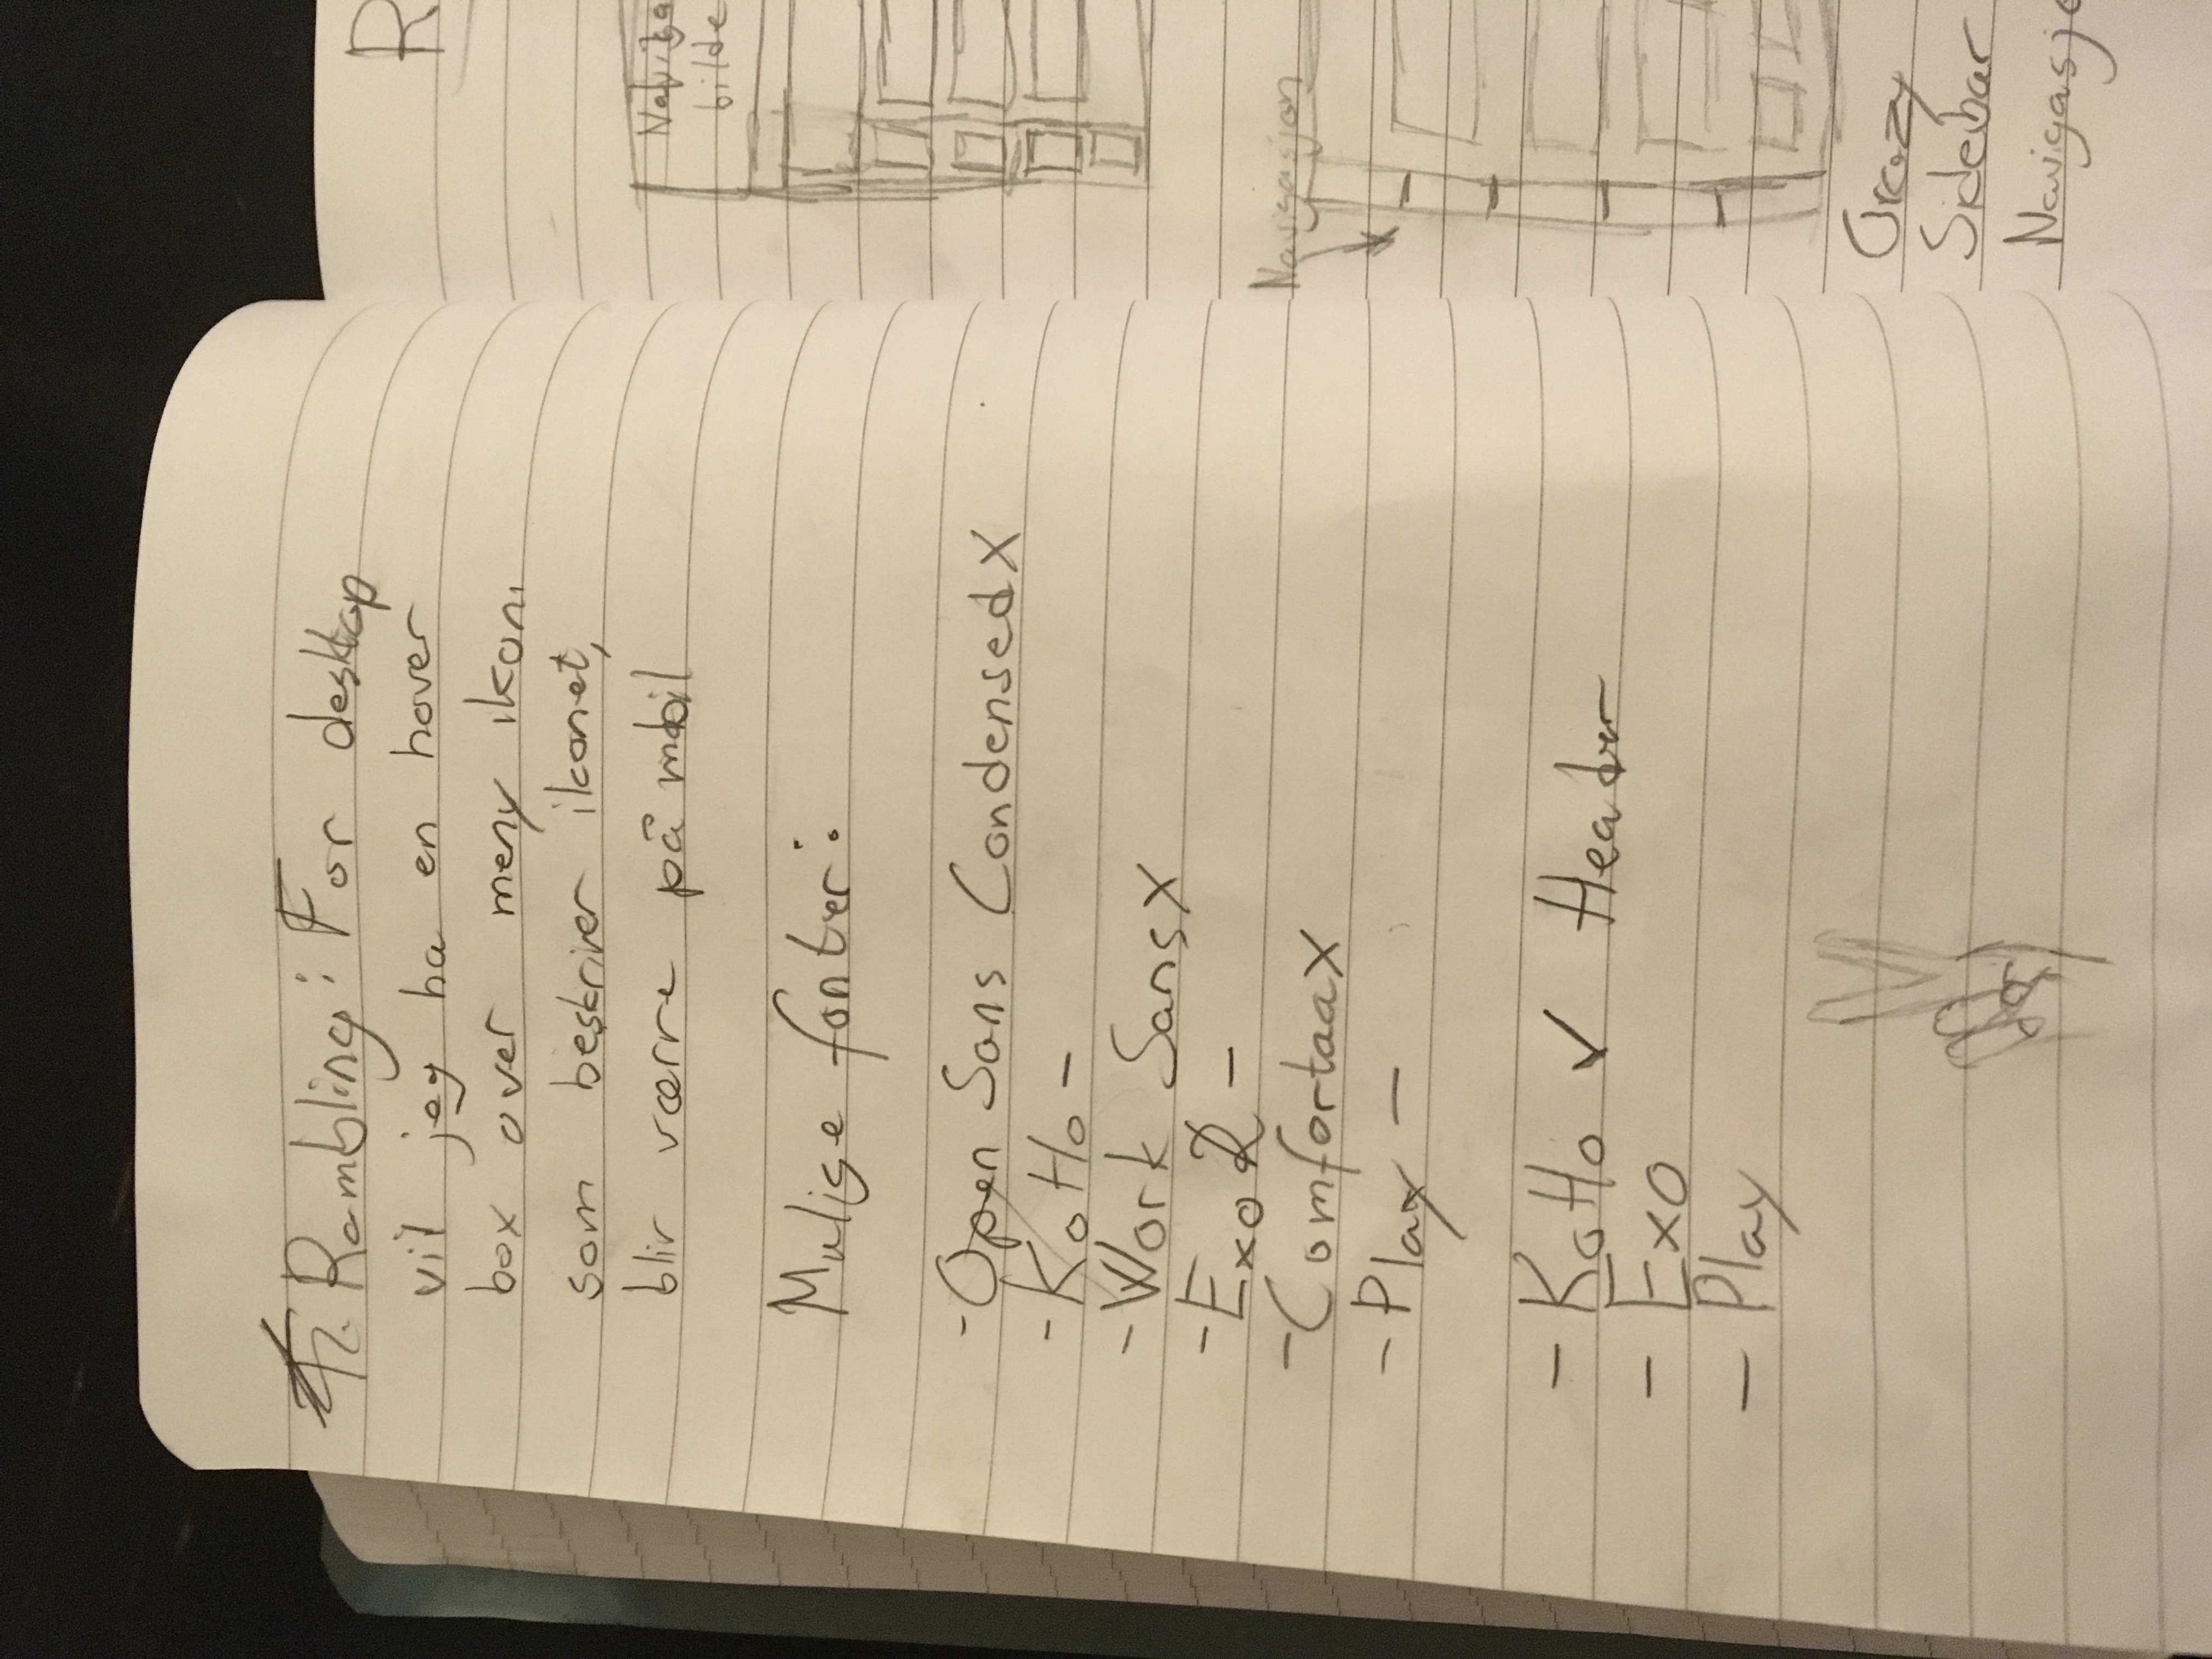 Rambling: For desktop
vil jeg ha en hover
box over meny ikon.
som beskriver ikonet,
blir værre på mobil
Mulige fonter:
- Open Sans Condensed X
- KoHo -
- Work Sans X
- Exo 2 -
- Comfortaa X
- Play -
- KoHo ✓ Header
- Exo
- Play
R
Naviga
bilde
Navigasjon
Crazy
Sidebar
Navigasjo